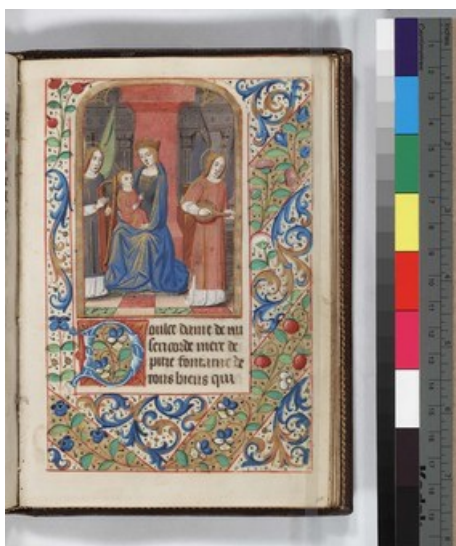 Doulce dame de mi
sericorde mere de
pitie fontaine de
tous biens qui